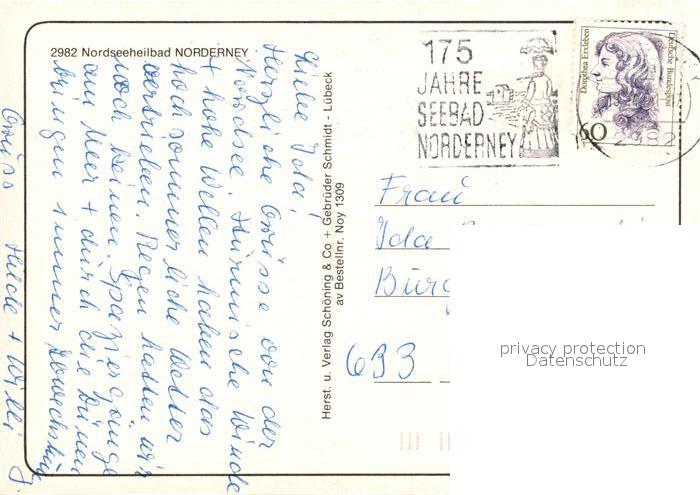 2982 Nordseeheilbad NORDERNEY
Liebe Ida!
Herzliche Grüsse von der
Nordsee. Stürmische Winde
+ hohe Wellen haben das
hochsommerliche Wetter
vertrieben. Regen hatten wir
noch keinen. Spaziergänge
am Meer + durch die Dünen
bringen immer Abwechslung.
Gruss Hilde + Willi
Herst. u. Verlag Schöning & Co + Gebrüder Schmidt - Lübeck
av Bestellnr. Noy 1309
175
JAHRE
SEEBAD
NORDERNEY
Dorothea Erxleben
Deutsche Bundespost
60
2982
Frau
Ida
Bürg
693
privacy protection
Datenschutz